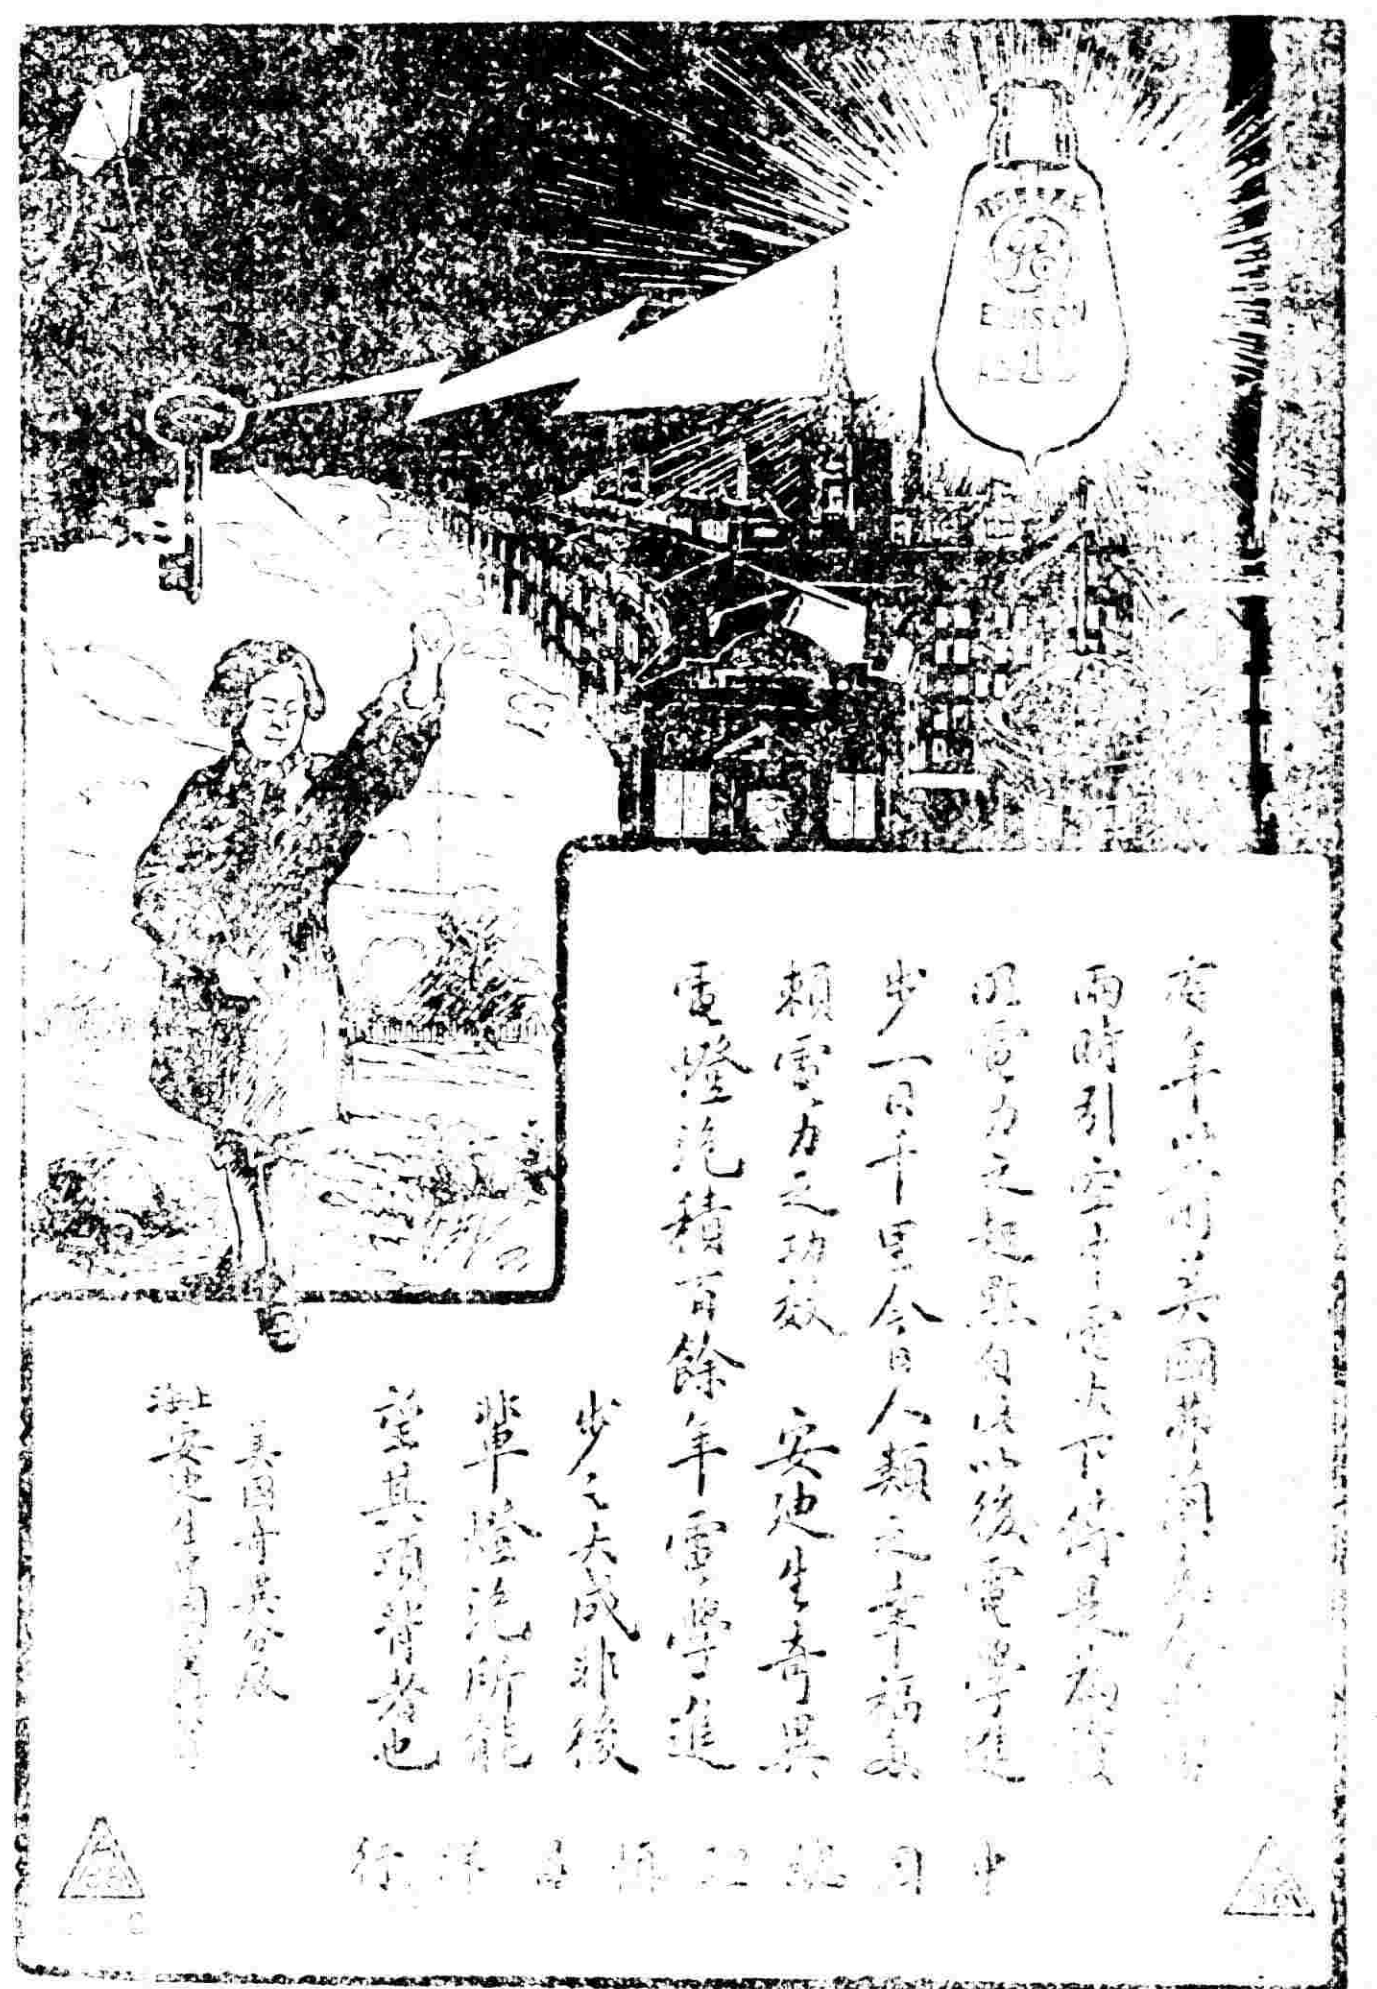 EDISON
百年以前美國弗蘭克
雨時引空中電火下降是為發
明電力之起點自此以後電學進
步一日千里今日人類之幸福無
賴電力之功效 安迪生奇異
電燈泡積百餘年電學進
步之大成非後
輩燈泡所能
望其項背者也
美國奇異公司
上海安迪生中國
中國 洋行